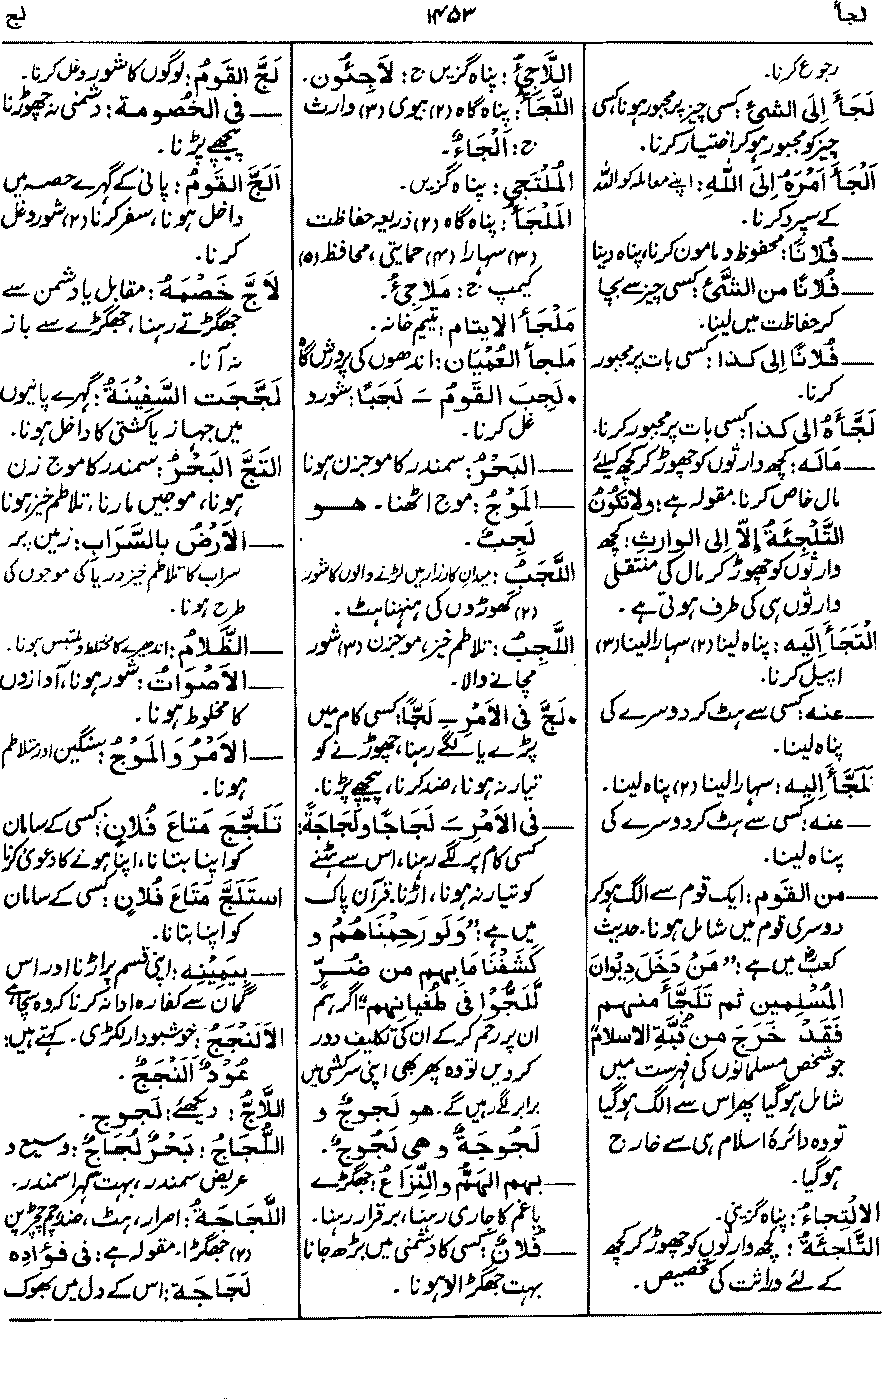 لجأ
۱۴۵۳
لج
رجوع کرنا۔
لَجَأَ إلَی الشئِ: کسی چیز پر مجبور ہونا، کسی
چیز کو مجبور ہو کر اختیار کرنا۔
اَلْجَأَ اَمْرَہٗ اِلَی اللّٰہِ: اپنے معاملہ کو اللہ
کے سپرد کرنا۔
— فُلَانًا: محفوظ و مامون کرنا، پناہ دینا
— فُلَانًا من الشَّئِ: کسی چیز سے بچا
کر حفاظت میں لینا۔
— فُلَانًا اِلی کذا: کسی بات پر مجبور
کرنا۔
لَجَّأَہٗ الی کذا: کسی بات پر مجبور کرنا۔
— مَالَہ: کچھ وارثوں کو چھوڑ کر کچھ کیلئے
مال خاص کرنا۔ مقولہ ہے: وَلَا تَکُوْنُ
التَّلْجِئَۃُ إلاَّ اِلی الوارثِ: کچھ
وارثوں کو چھوڑ کر مال کی منتقلی
وارثوں ہی کی طرف ہوتی ہے۔
اِلْتَجَأَ اِلَیہ: پناہ لینا (۲) سہارا لینا (۳)
اپیل کرنا۔
— عنہ: کسی سے ہٹ کر دوسرے کی
پناہ لینا۔
تَلَجَّأَ اِلیہ: سہارا لینا (۲) پناہ لینا۔
— عنہ: کسی سے ہٹ کر دوسرے کی
پناہ لینا۔
— من القَوم: ایک قوم سے الگ ہو کر
دوسری قوم میں شامل ہونا۔ حدیث
کعبؓ میں ہے: "مَنْ دَخَلَ دِیْوَانَ
المُسْلِمین ثم تَلَجَّأَ منہم
فَقَدْ خَرَجَ من قُبَّۃِ الاسلام"
جو شخص مسلمانوں کی فہرست میں
شامل ہو گیا پھر اس سے الگ ہو گیا
تو وہ دائرۂ اسلام ہی سے خارج
ہو گیا۔
الاِلْتِجاءُ: پناہ گزینی۔
التَّلْجِئَۃُ: کچھ وارثوں کو چھوڑ کر کچھ
کے لئے وراثت کی تخصیص۔
اللَّاجِئُ: پناہ گزیں ج: لاَجِئُون۔
اللَّجَأُ: پناہ گاہ (۲) بیوی (۳) وارث
ج: اَلْجَاءٌ۔
المُلْتَجِی: پناہ گزیں۔
المَلْجَأُ: پناہ گاہ (۲) ذریعہ حفاظت
(۳) سہارا (۴) حمایتی، محافظ (۵)
کیمپ ج: مَلَاجِئُ۔
مَلْجَأُ الایتام: یتیم خانہ۔
مَلجأ العُمْیَان: اندھوں کی پرورش گاہ
• لَجِبَ القَومُ ـَ لَجَبًا: شور و
غل کرنا۔
— البَحْرُ: سمندر کا موجزن ہونا
— المَوْجُ: موج اٹھنا۔ ھو
لَجِبٌ۔
اللَّجَبُ: میدان کارزار میں لڑنے والوں کا شور
(۲) گھوڑوں کی ہنہناہٹ۔
اللَّجِبُ: تلاطم خیز، موجزن (۳) شور
مچانے والا۔
• لَجَّ فی الاَمْرِ ـَ لَجًّا: کسی کام میں
پڑے یا لگے رہنا، چھوڑنے کو
تیار نہ ہونا، ضد کرنا، پیچھے پڑنا۔
— فی الاَمْرِ ـَ لَجَاجًا وَلَجَاجَۃً:
کسی کام پر لگے رہنا، اس سے ہٹنے
کو تیار نہ ہونا، اڑنا۔ قرآن پاک
میں ہے: "وَلَو رَحِمْنَاھُمْ و
کَشَفْنَا مَا بِہِم من ضُرٍّ
لَّلَجُّوْا فی طُغْیَانِہِم" اگر ہم
ان پر رحم کر کے ان کی تکلیف دور
کر دیں تو وہ پھر بھی اپنی سرکشی میں
برابر لگے رہیں گے۔ ھو لَجوجٌ و
لَجُوجَۃٌ و ھی لَجُوجٌ۔
— بہم الہَمُّ والنِّزَاعُ: جھگڑے
یا غم کا جاری رہنا، برقرار رہنا۔
— فُلَانٌ: کسی کا دشمنی میں بڑھ جانا
بہت جھگڑالا ہونا۔
لَجَّ القَومُ: لوگوں کا شور و غل کرنا۔
— فی الخُصُومۃ: دشمنی نہ چھوڑنا
پیچھے پڑنا۔
اَلَجَّ القَومُ: پانی کے گہرے حصہ میں
داخل ہونا، سفر کرنا (۲) شور و غل
کرنا۔
لَاجَّ خَصْمَہٗ: مقابل یا دشمن سے
جھگڑتے رہنا، جھگڑے سے باز
نہ آنا۔
لَجَّجَتِ السَّفِیْنَۃُ: گہرے پانیوں
میں جہاز یا کشتی کا داخل ہونا۔
اِلْتَجَّ البَحْرُ: سمندر کا موج زن
ہونا، موجیں مارنا، تلاطم خیز ہونا
— الاَرْضُ بِالسَّرَابِ: زمین پر
سراب کا تلاطم خیز دریا کی موجوں کی
طرح ہونا۔
— الظَّلَامُ: اندھیرے کا مختلط و ملتبس ہونا۔
— الاَصْوَاتُ: شور ہونا، آوازوں
کا مخلوط ہونا۔
— الاَمْرُ وَالمَوْجُ: سنگین اور متلاطم
ہونا۔
تَلَجَّجَ مَتاعَ فُلَانٍ: کسی کے سامان
کو اپنا بتانا، اپنا ہونے کا دعویٰ کرنا
اِسْتَلَجَّ مَتَاعَ فُلَانٍ: کسی کے سامان
کو اپنا بتانا۔
— بِیَمِیْنِہ: اپنی قسم پر اڑنا اور اس
گمان سے کفارہ ادا نہ کرنا کہ وہ سچا ہے
الاَلَنْجَجُ: خوشبودار لکڑی۔ کہتے ہیں:
عُودٌ اَلَنْجَجٌ۔
اللَّاجُّ: دیکھئے: لَجوج۔
اللُّجَاجُ: بَحْرٌ لُجَاجٌ: وسیع و
عریض سمندر، بہت گہرا سمندر۔
اللَّجَاجَۃُ: اصرار، ہٹ، ضد، چڑچڑا پن
(۲) جھگڑا۔ مقولہ ہے: فی فُؤَادِہ
لَجَاجَۃ: اس کے دل میں بھوک